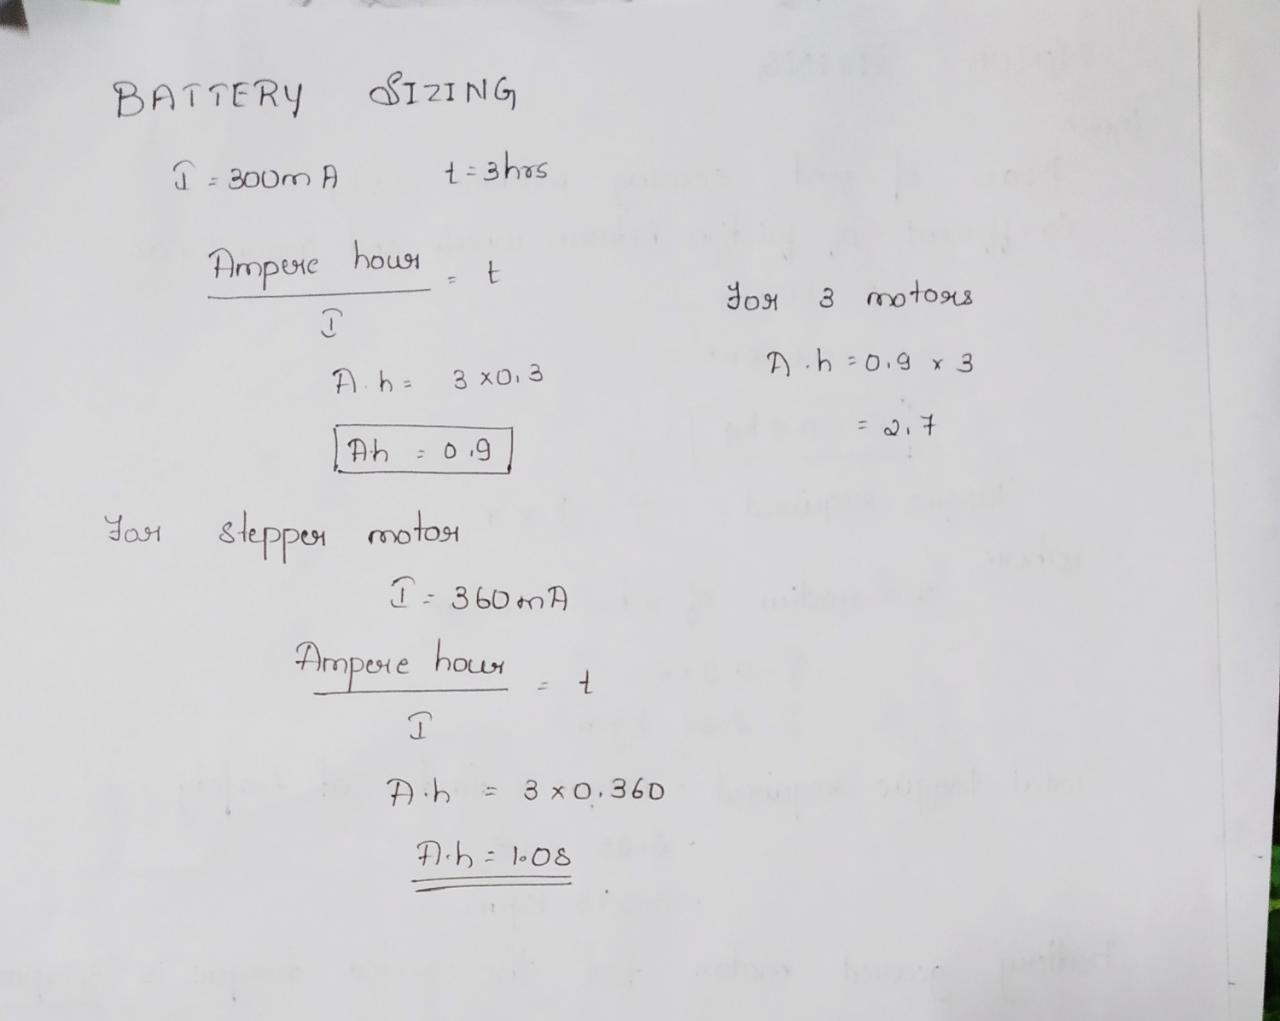 BATTERY SIZING
I = 300mA t = 3hrs
Ampere hour / I = t
A.h = 3 x 0.3
Ah = 0.9
For 3 motors
A.h = 0.9 x 3
= 2.7
For stepper motor
I = 360mA
Ampere hour / I = t
A.h = 3 x 0.360
A.h = 1.08